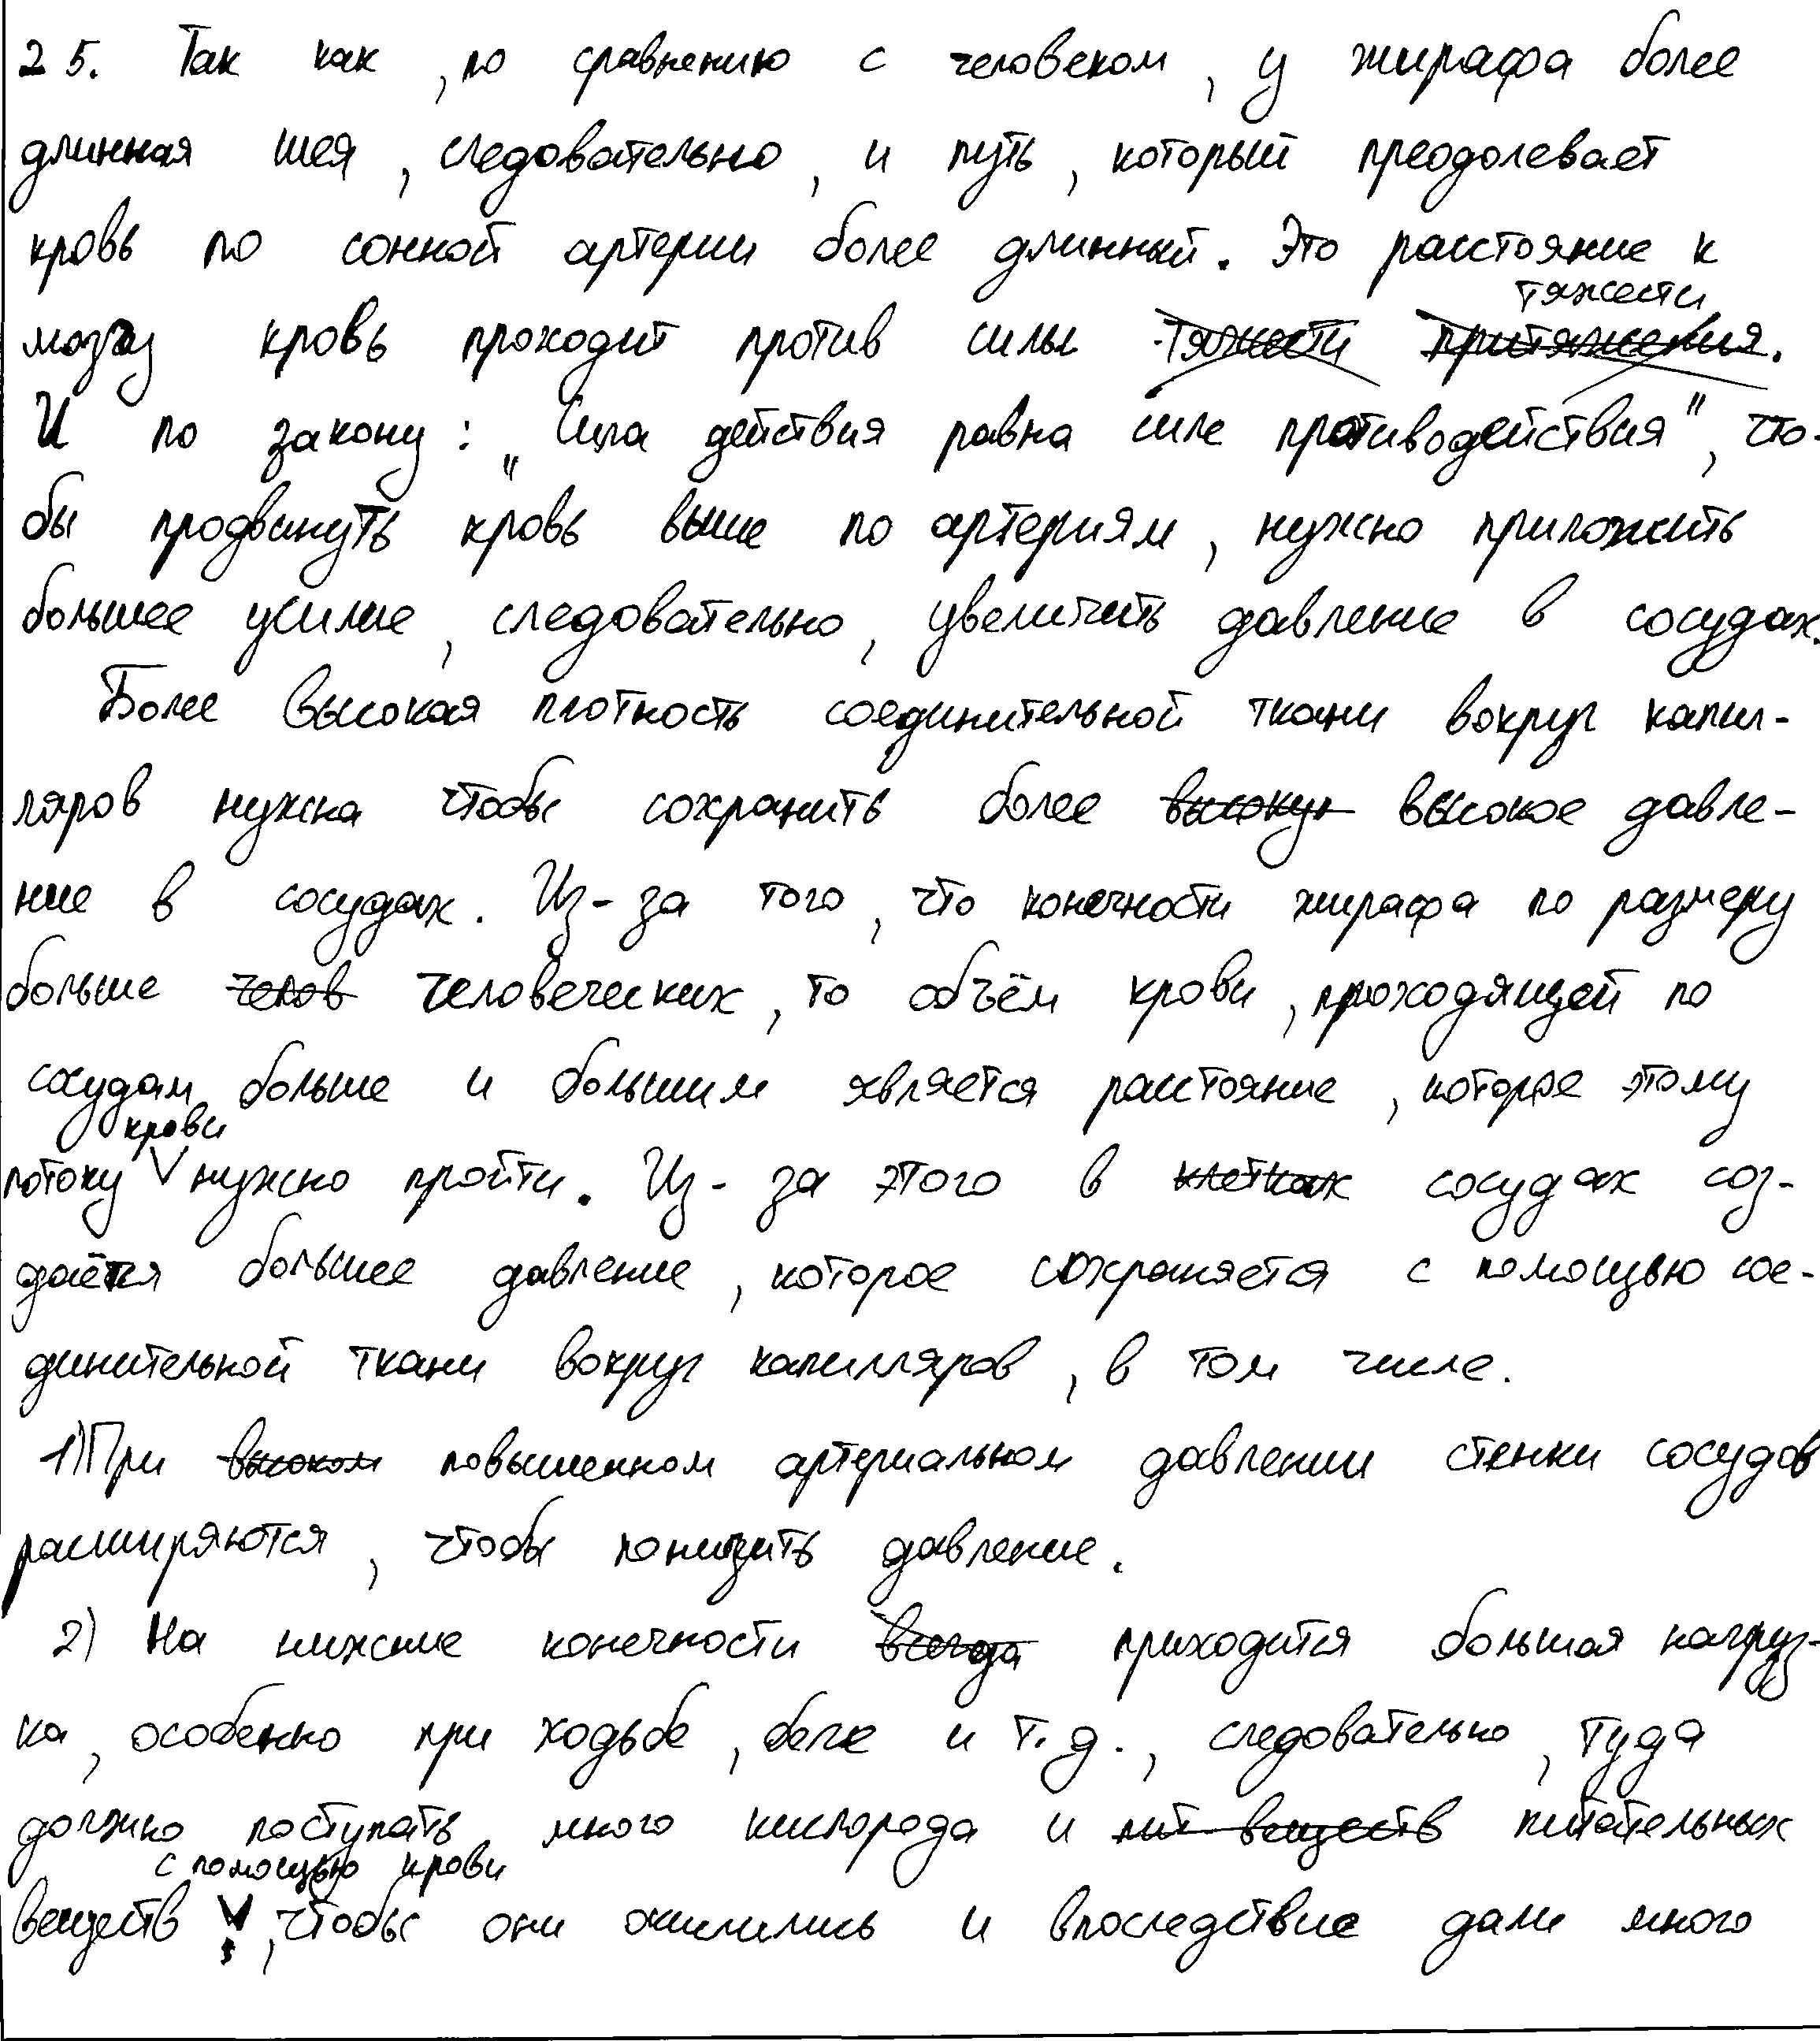 25. Так как, по сравнению с человеком, у жирафа более
длинная шея, следовательно, и путь, который преодолевает
кровь по сонной артерии более длинный. Это расстояние к
тяжести
мозгу кровь проходит против силы тяжести притяжения.
И по закону: „Сила действия равна силе противодействия", что-
бы продвинуть кровь выше по артериям, нужно приложить
большее усилие, следовательно, увеличить давление в сосудах.
Более высокая плотность соединительной ткани вокруг капил-
ляров нужна чтобы сохранить более высокую высокое давле-
ние в сосудах. Из-за того, что конечности жирафа по размеру
больше челов человеческих, то объём крови, проходящей по
сосудам больше и большим является расстояние, которое этому
крови
потоку V нужно пройти. Из-за этого в клетках сосудах соз-
даётся большее давление, которое сохраняется с помощью сое-
динительной ткани вокруг капилляров, в том числе.
1) При высоком повышенном артериальном давлении стенки сосудов
расширяются, чтобы понизить давление.
2) На нижние конечности всегда приходится большая нагруз-
ка, особенно при ходьбе, беге и т.д., следовательно, туда
должно поступать много кислорода и пит веществ питательных
с помощью крови
веществ V, чтобы они окислились и впоследствие дали много